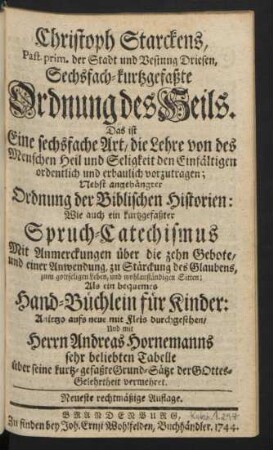 Christoph Starckens,
Past. prim. der Stadt und Vestung Driesen,
Sechsfach-kurtzgefaßte
Ordnung des Heils.
Das ist
Eine sechsfache Art, die Lehre von des
Menschen Heil und Seligkeit den Einfältigen
ordentlich und erbaulich vorzutragen;
Nebst angehängter
Ordnung der Biblischen Historien:
Wie auch ein kurtzgefaßter
Spruch-Catechismus
Mit Anmerckungen über die zehn Gebote,
und einer Anwendung, zu Stärckung des Glaubens,
zum gottseligen Leben, und wohlanständigen Sitten;
Als ein bequemes
Hand-Büchlein für Kinder:
Anietzo aufs neue mit Fleis durchgesehen,
Und mit
Herrn Andreas Hornemanns
sehr beliebten Tabelle
über seine kurtz-gefaßte Grund-Sätze der GOttes-
Gelehrtheit vermehret.
Neueste rechtmäßige Auflage.
BRANDENBURG,
Zu finden bey Joh. Ernst Wohlfelden, Buchhändler. 1744.